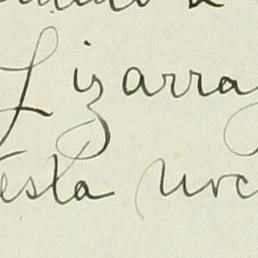 Lizarra
esta urc